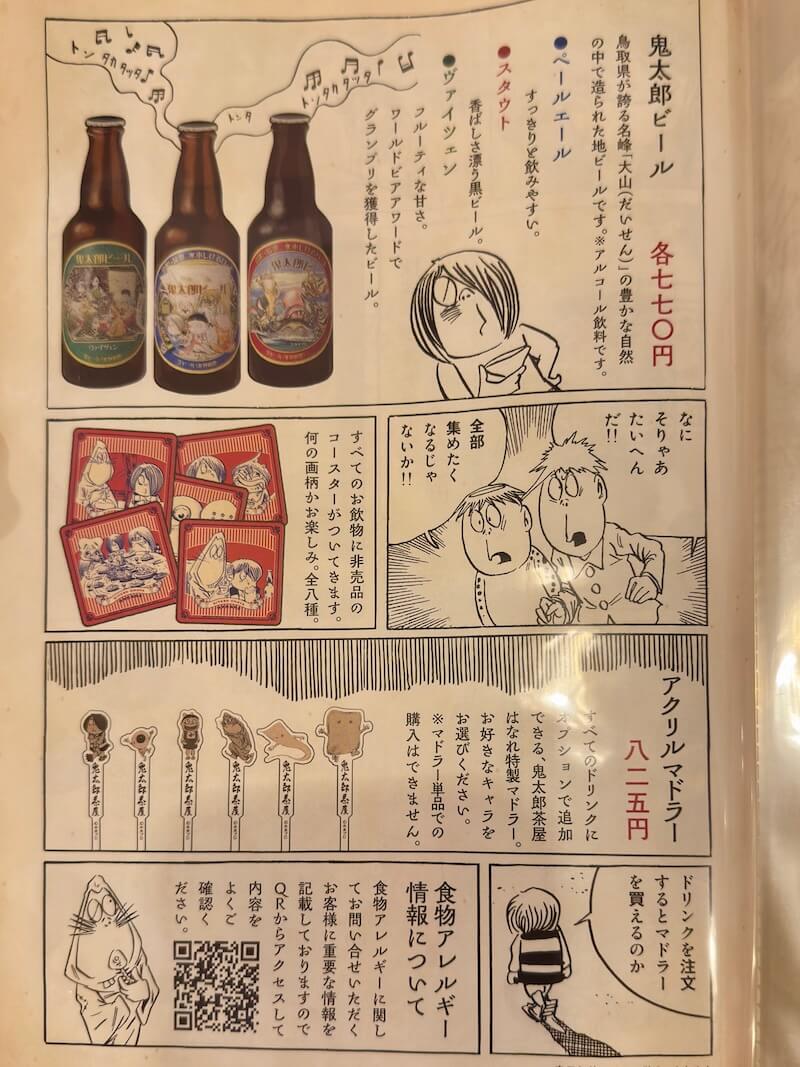 鬼太郎ビール 各七七〇円
鳥取県が誇る名峰「大山(だいせん)」の豊かな自然
の中で造られた地ビールです。※アルコール飲料です。
●ペールエール
すっきりと飲みやすい。
●スタウト
香ばしさ漂う黒ビール。
●ヴァイツェン
フルーティな甘さ。
ワールドビアアワードで
グランプリを獲得したビール。
トンタカタッタ
トンタ
トンタカタッタ
鬼太郎ビール
ヴァイツェン
鬼太郎ビール
鬼太郎ビール
なに
そりゃあ
たいへん
だ!!
全部
集めたく
なるじゃ
ないか!!
すべてのお飲物に非売品の
コースターがついてきます。
何の画柄かお楽しみ。全八種。
アクリルマドラー
八二五円
すべてのドリンクに
オプションで追加
できる、鬼太郎茶屋
はなれ特製マドラー。
お好きなキャラを
お選びください。
※マドラー単品での
購入はできません。
鬼太郎茶屋
鬼太郎茶屋
鬼太郎茶屋
鬼太郎茶屋
鬼太郎茶屋
鬼太郎茶屋
ドリンクを注文
するとマドラー
を買えるのか
食物アレルギー
情報について
食物アレルギーに関し
てお問い合せいただく
お客様に重要な情報を
記載しておりますので
QRからアクセスして
内容を
よくご
確認く
ださい。